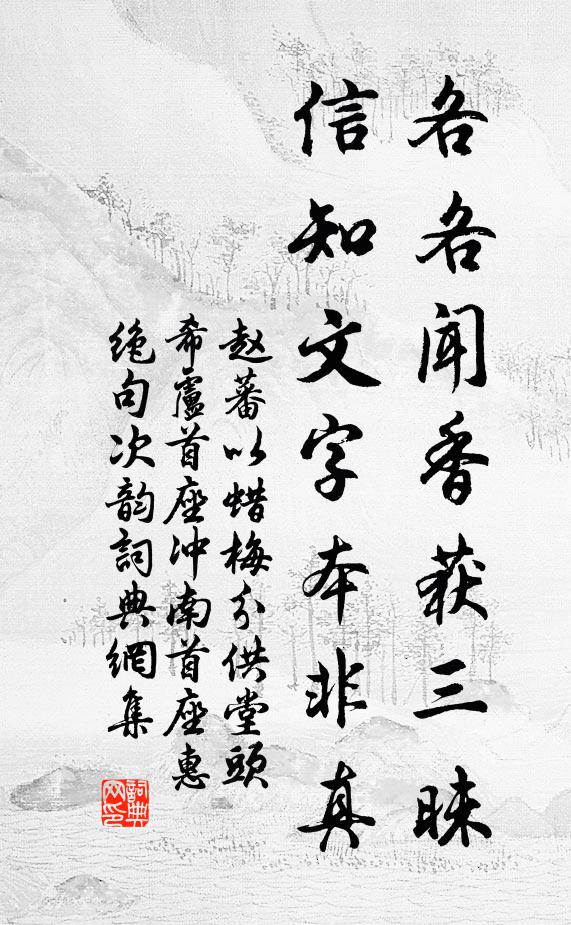 各各闻香获三昧
信知文字本非真
赵蕃以蜡梅分供堂头
希盧首座冲南首座惠
绝句次韵詞典網集
詞典网印